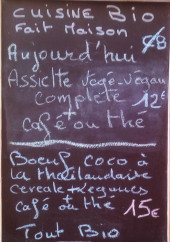 CUISINE BIO
Fait Maison
CB
Aujourd'hui
Assiette Végé-Végan
Complète 12€
+
café ou thé
Boeuf coco à
la thaïlandaise
céréale + légumes
+
café ou thé 15€
Tout Bio